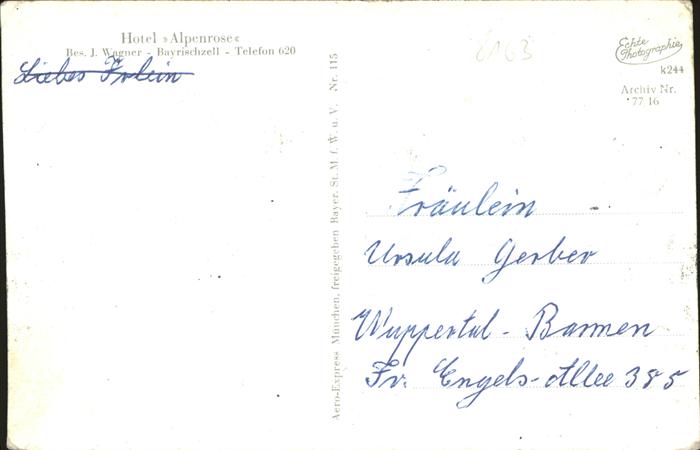 Hotel »Alpenrose«
Bes. J. Wagner - Bayrischzell - Telefon 620
Liebes Frlein
Aero-Express München, freigegeben Bayer. St. M. f. W. u. V. Nr. 115
8163
Echte
Photographie
k244
Archiv Nr.
77 16
Fräulein
Ursula Gerber
Wuppertal - Barmen
Fr. Engels-Allee 385